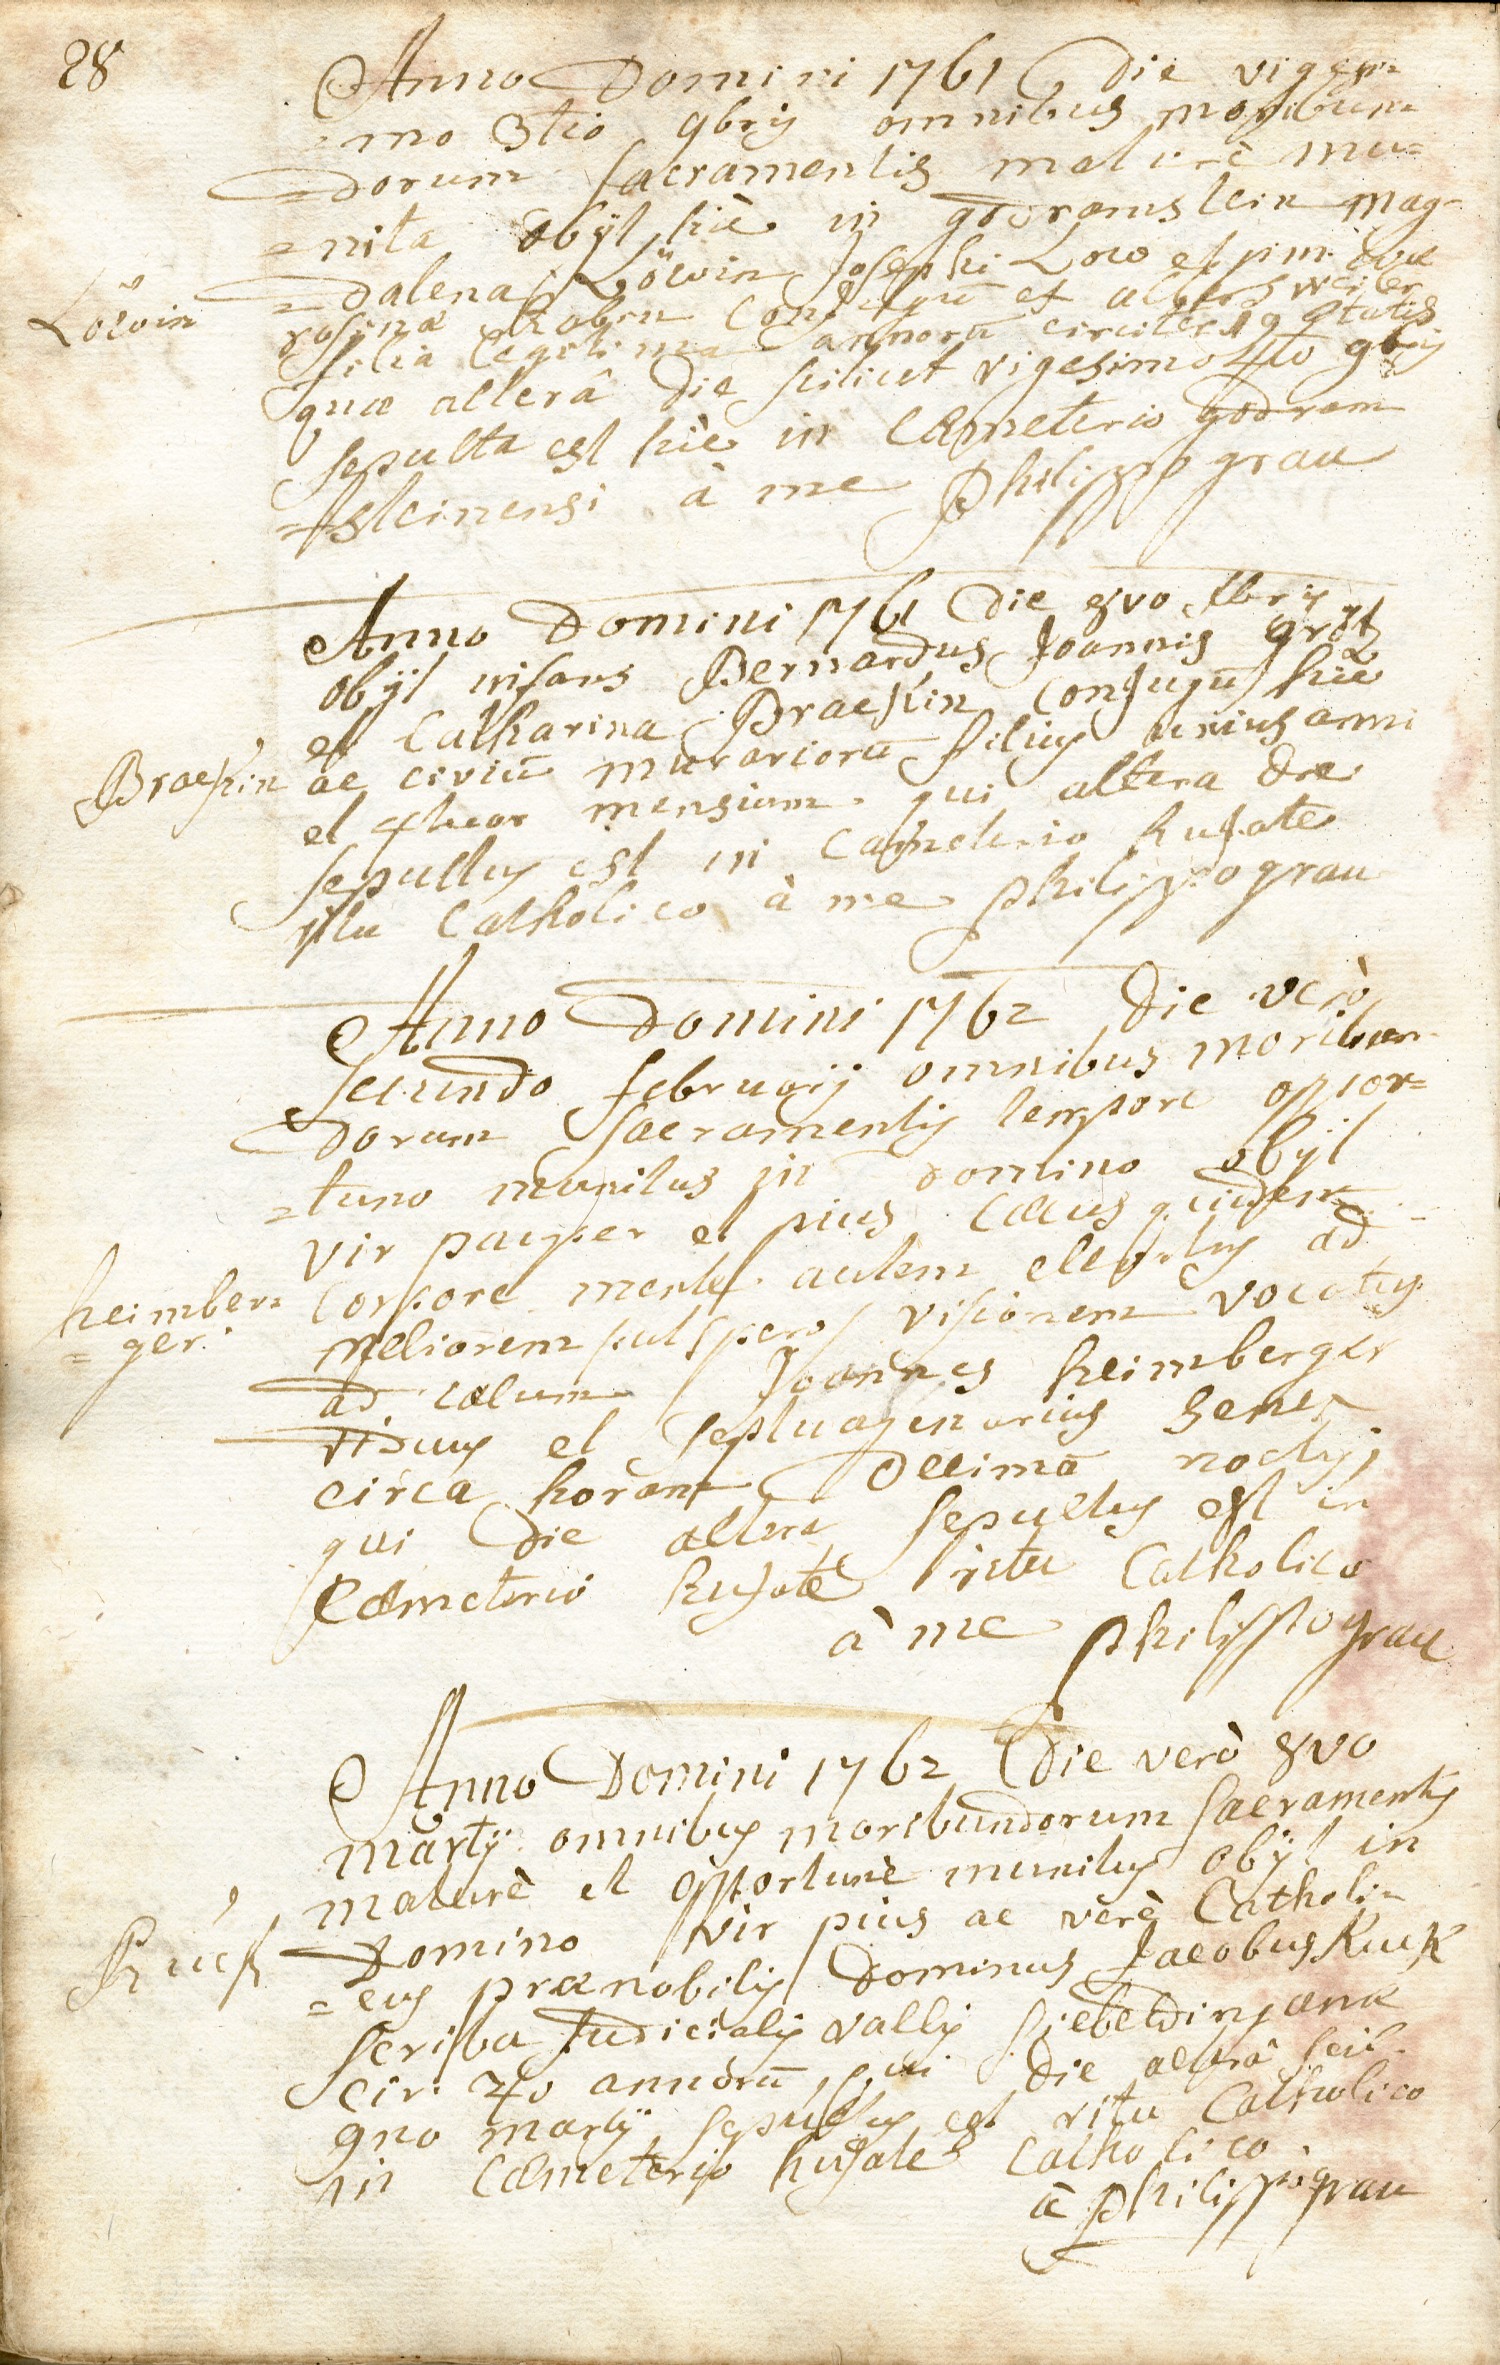 28
Anno Domini 1761 Die vigesi=
=mo 3tio 9bris omnibus moribun=
=dorum sacramentis maturè mu=
=nita obijt hîc in godramstein Mag=
Löwin
=dalena Löwin Josephi Löw et
rosinæ conjugum et albersweiler
filia legitima annorū circiter 19 ætatis
quæ alterâ die scilicet vigesimo 4to 9bris
sepulta est hîc in Cæmeterio godram
=steinensi à me Philippo grau
Anno Domini 1761 Die 8vo
obijt infans Bernardus Joannis
et Catharina Braekin Conjugū hîc
Braekin
ac civiū murariorū filius unius anni
et 4tuor mensium. qui altera die
sepultus est in Cæmeterio hujate
ritu Catholico à me philippo grau
Anno Domini 1762 Die verò
secundo februarij omnibus moribun
dorum Sacramentis tempore oppor=
=tuno munitus in domino obijt
vir pauper et pius Cæcus quidem
heimber=
=ger.
Corpore mente autem ad
meliorem /ut spero/ visionem vocatus
ad cælum / Joannes heimberger
viduus et septuagenarius senex
circa horam decimā noctis,
qui Die altera sepultus est in
Cæmeterio hujate ritu Catholico
à me philippo grau
Anno Domini 1762 Die verò 8vo
martij omnibus moribundorum sacramentis
maturè et opportunè munitus obijt in
Domino vir pius ac verè Catholi=
Kuck
=cus prænobilis Dominus Jacobus Kuck
scriba Judicialis vallis siebeldingana
cir: 70 annorū, qui Die alterâ scil.
9no martij sepultus est ritu Catholico
in Cæmeterio hujate Catholico.
à Philippo grau